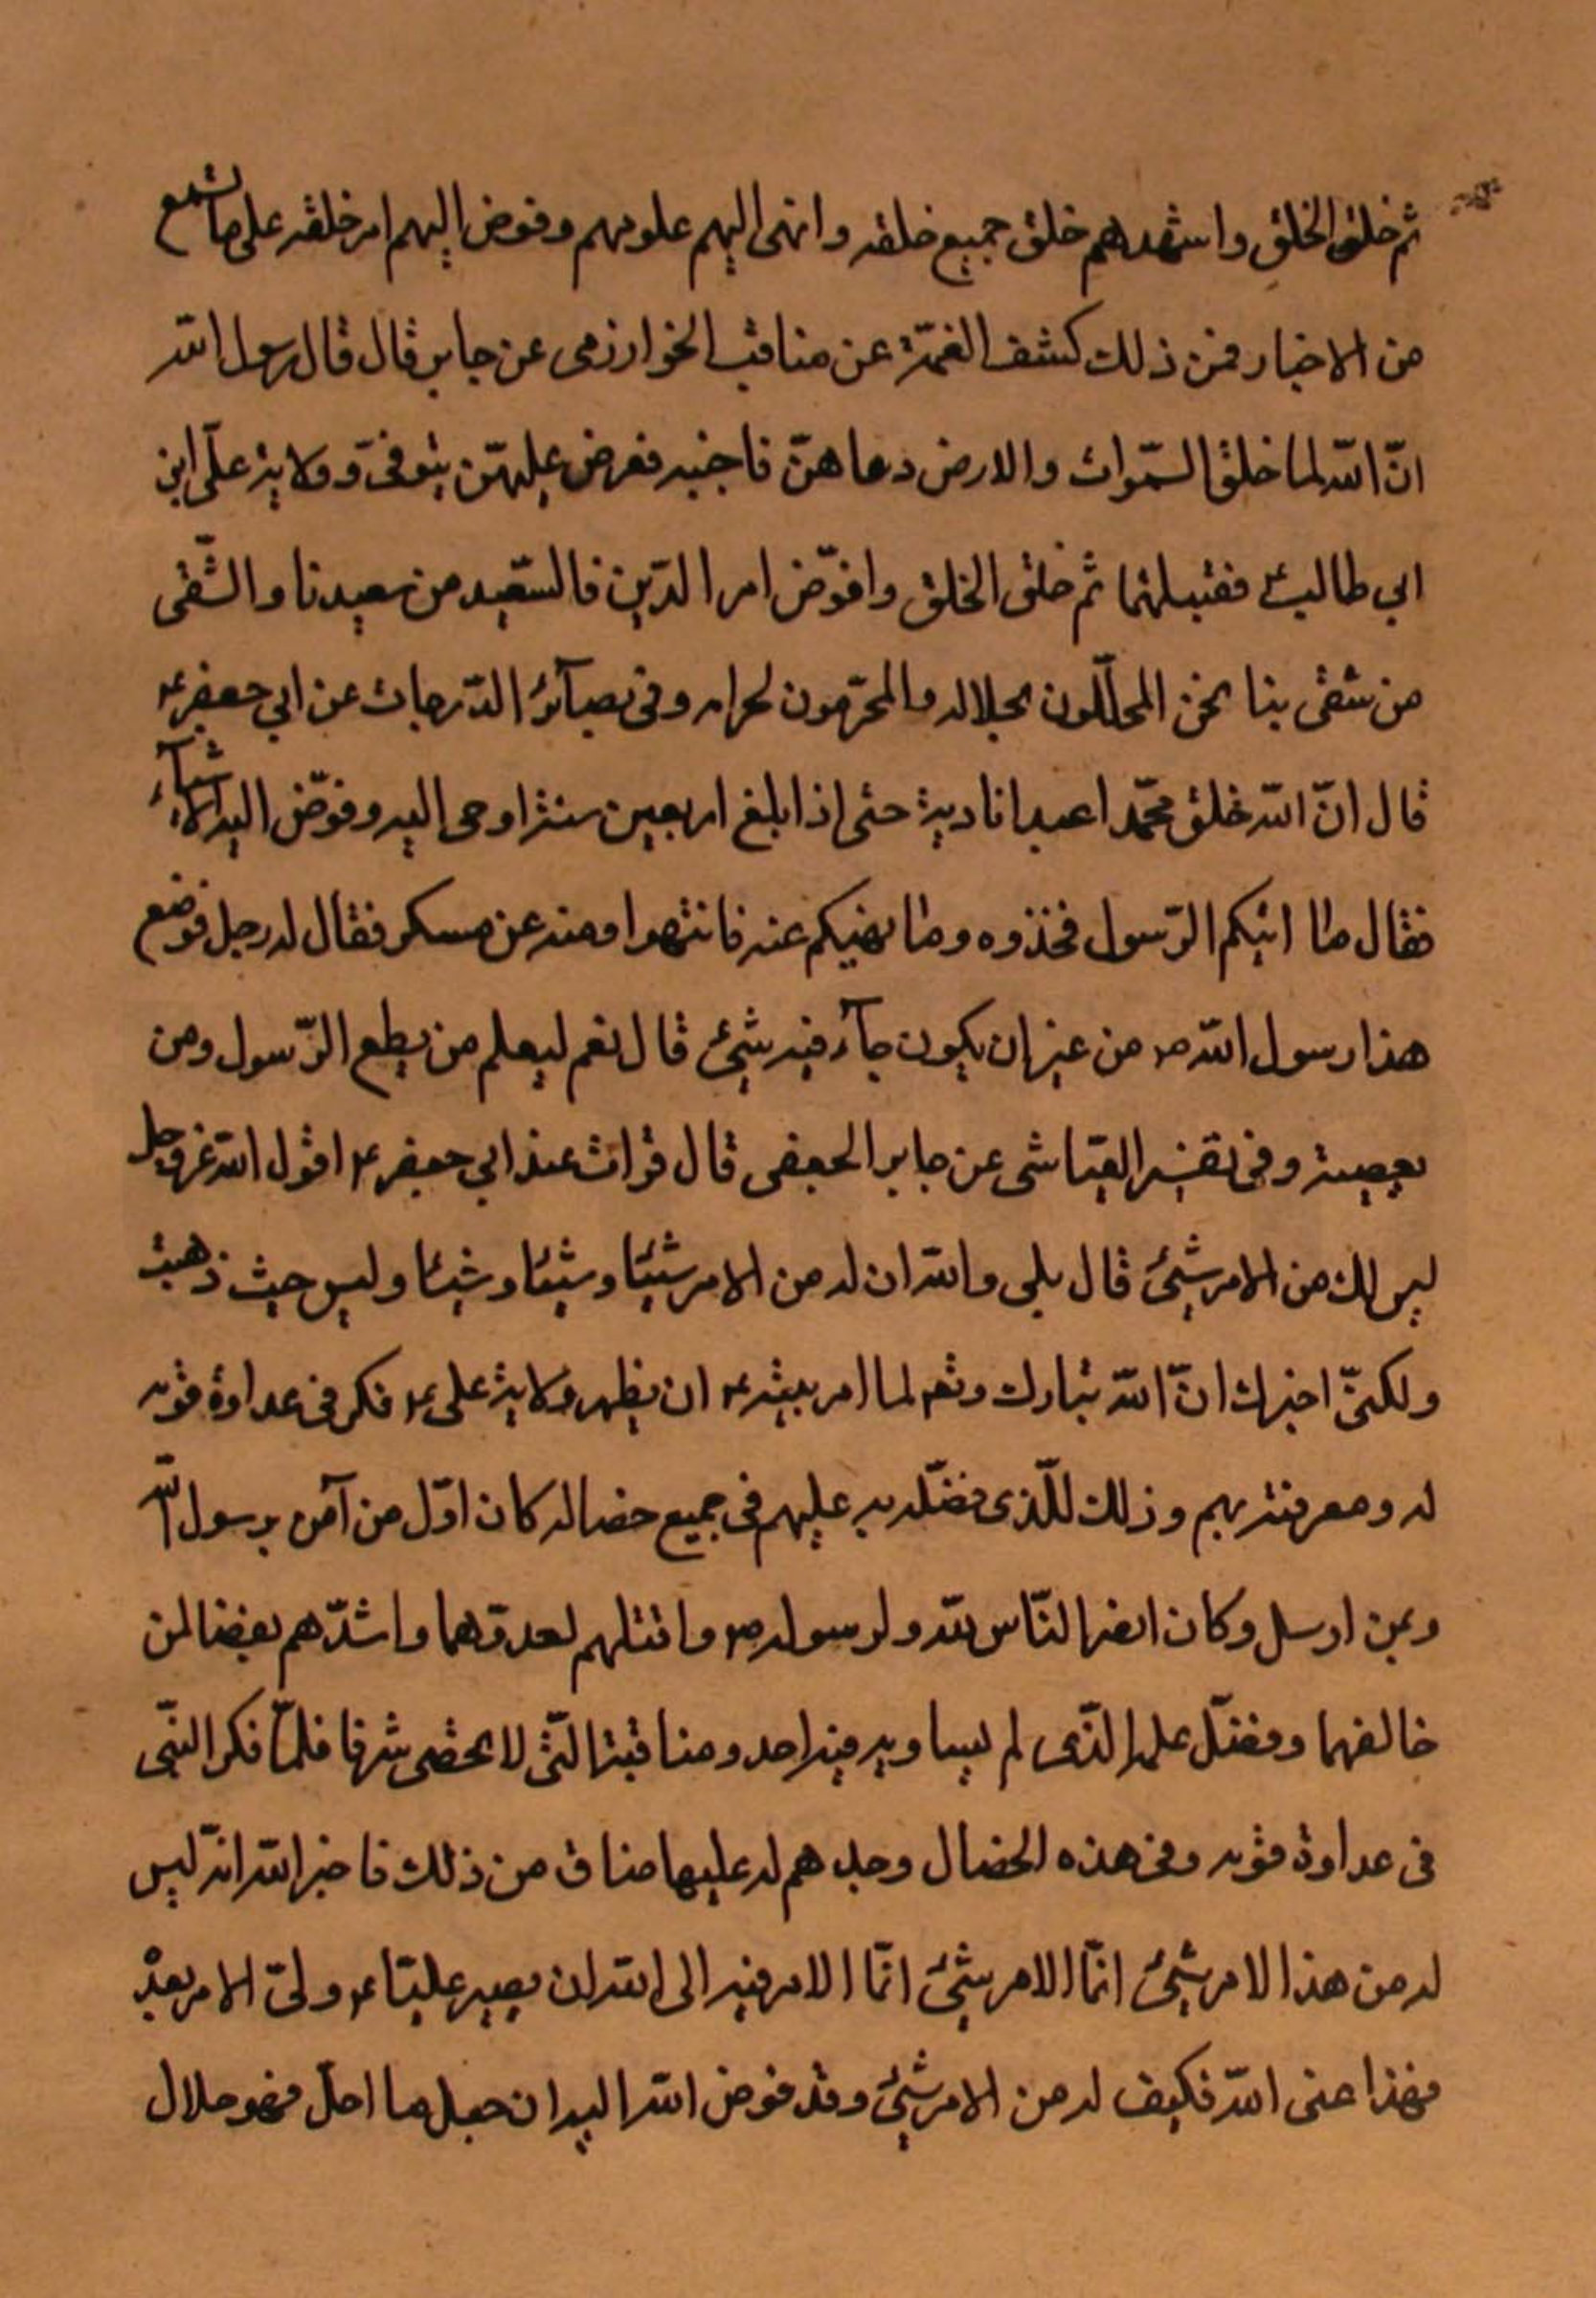 ثم خلق الخلق واشهدهم خلق جميع خلقه وانهى اليهم علومهم وفوض اليهم امر خلقه على ما تسمع
من الاخبار فمن ذلك كشف الغمّة عن مناقب الخوارزمى عن جابر قال قال رسول الله
انّ الله لما خلق السّموات والارض دعاهنّ فاجبنه فعرض عليهنّ نبوّتى وولاية علىّ ابن
ابي طالب ع فقبلتهما ثم خلق الخلق وافوّض امر الدّين فالسّعيد من سعيدنا والشّقى
من شقى بنا نحن المحلّلون لحلاله والمحرّمون لحرامه وفى بصآئر الدّرجات عن ابي جعفر ع
قال انّ الله خلق محمّدا عبدا نادبة حتى اذا بلغ اربعين سنة اوحى اليه وفوّض اليه الاشيآء
فقال ما اتيكم الرّسول فخذوه وما نهيكم عنه فانتهوا ومنه عن مسكر فقال له رجل فوضع
هذا رسول الله ص من غير ان يكون جآء فيه شيئ قال نعم ليعلم من يطع الرّسول ومن
يعصيه وفى تفسير العيّاشى عن جابر الجعفى قال قرات عند ابي جعفر ع اقول الله عز وجل
ليس لك من الامر شيئ قال بلى والله ان له من الامر شيئا وشيئا وشيئا وليس حيث ذهبت
ولكنّى اخبرك انّ الله تبارك وتعم لما امر نبيه ع ان يظهر ولاية على ع فكر فى عداوة قومه
له ومعرفته بهم وذلك للّذى فضّله به عليهم فى جميع خصاله كان اوّل من آمن برسول الله
وبمن ارسل وكان انصر النّاس لله ولرسوله ص واقتلهم لعدوّهما واشدّهم بغضا لمن
خالفهما وفضّل علمه الّذى لم يساويه فيه احد ومناقبه الّتى لا يحصى شرفا فلمّا فكر النبّى
فى عداوة قومه وفى هذه الخصال وجد هم له عليها ضاق من ذلك فاخبر الله انّه ليس
له من هذا الامر شيئ انّما الامر شيئ انّما الامر فيه الى الله ان يصير عليّا ع ولىّ الامر بعده
فهذا عنى الله فكيف له من الامر شيئ وقد فوض الله اليه ان جعل ما احلّ فهو حلال